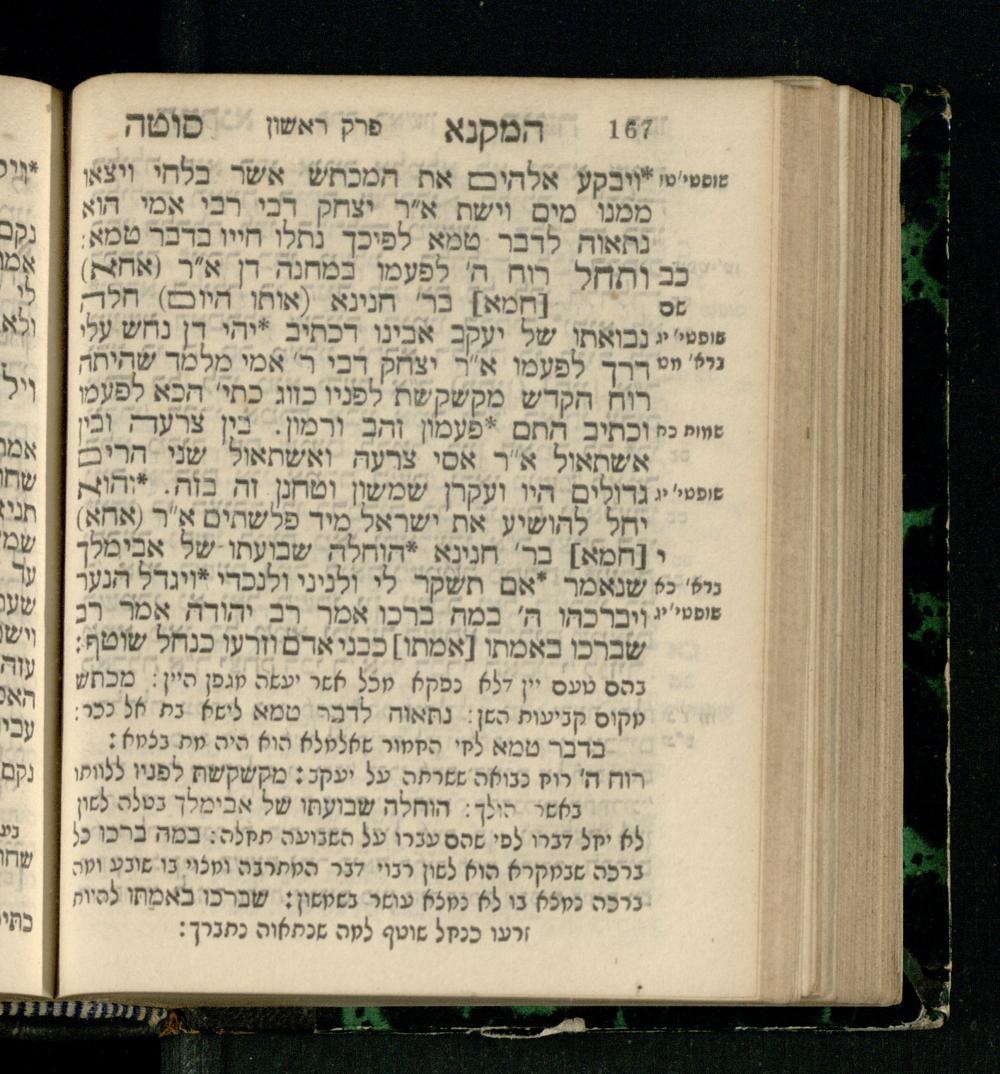 167 המקנא פרק ראשון סוטה
שופטי׳ טו *ויבקע אלהים את המכתש אשר בלחי ויצאו
ממנו מים וישת א״ר יצחק דבי רבי אמי הוא
נתאוה לדבר טמא לפיכך נתלו חייו בדבר טמא:
כב ותחל רוח ה׳ לפעמו במחנה דן א״ר (אחא)
שם [חמא] בר׳ חנינא (אותו היום) חלה
שופטי׳ יג נבואתו של יעקב אבינו דכתיב *יהי דן נחש עלי
ברא׳ מט דרך לפעמו א״ר יצחק דבי ר׳ אמי מלמד שהיתה
רוח הקדש מקשקשת לפניו כזוג כתי׳ הכא לפעמו
שמות כח וכתיב התם *פעמון זהב ורמון. בין צרעה ובין
אשתאול א״ר אסי צרעה ואשתאול שני הרים
שופטי׳ יג גדולים היו ועקרן שמשון וטחנן זה בזה. *והוא
יחל להושיע את ישראל מיד פלשתים א״ר (אחא)
י [חמא] בר׳ חנינא *הוחלה שבועתו של אבימלך
ברא׳ כא שנאמר *אם תשקר לי ולניני ולנכדי *ויגדל הנער
שופטי׳ יג ויברכהו ה׳ במה ברכו אמר רב יהודה אמר רב
שברכו באמתו [אמתו] כבני אדם וזרעו כנחל שוטף:
בהם טעם יין דלא נפקא מכל אשר יעשה מגפן היין: מכתש
מקום קביעות השן: נתאוה לדבר טמא לישא בת אל נכר:
בדבר טמא לחי החמור שאלמלא הוא היה מת בצמא:
רוח ה׳ רוח נבואה ששרתה על יעקב: מקשקשת לפניו ללוותו
באשר הולך: הוחלה שבועתו של אבימלך בטלה לשון
לא יחל דברו לפי שהם עברו על השבועה תחלה: במה ברכו כל
ברכה שבמקרא הוא לשון רבוי דבר המתרבה ומצוי בו שובע ומה
ברכה נמצא בו לא נמצא עושר בשמשון: שברכו באמתו להיות
זרעו כנחל שוטף למה שנתאוה נתברך: